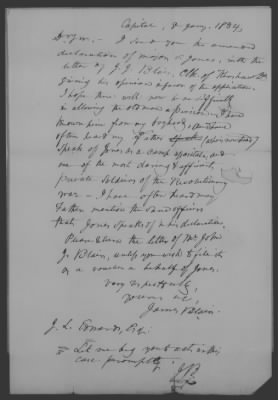 Capitol, 8 Jany, 1834,
D Sir, - I send you the amended
declaration of Major Jones, with the
letter of J. J. Blair, Clk of Hawkins Co
giving his opinion in favor of the application.
I hope there will now be no difficulty
in allowing the old man a pension. I have
known him from my boyhood, & have
often heard my Father (also
speak of Jones as a camp associate, and
one of the most daring & efficient
private soldiers of the Revolutionary
war - I have often heard my
Father mention the same officers
that Jones speaks of in his declaration.
Please return the letter of Mr John
J. Blair, unless you wish to file it
as a voucher in behalf of Jones.
very respectfully
yours &c,
James Blair.
J. L. Edwards, Esqr.
Let me beg you to act on this
case promptly.
JB